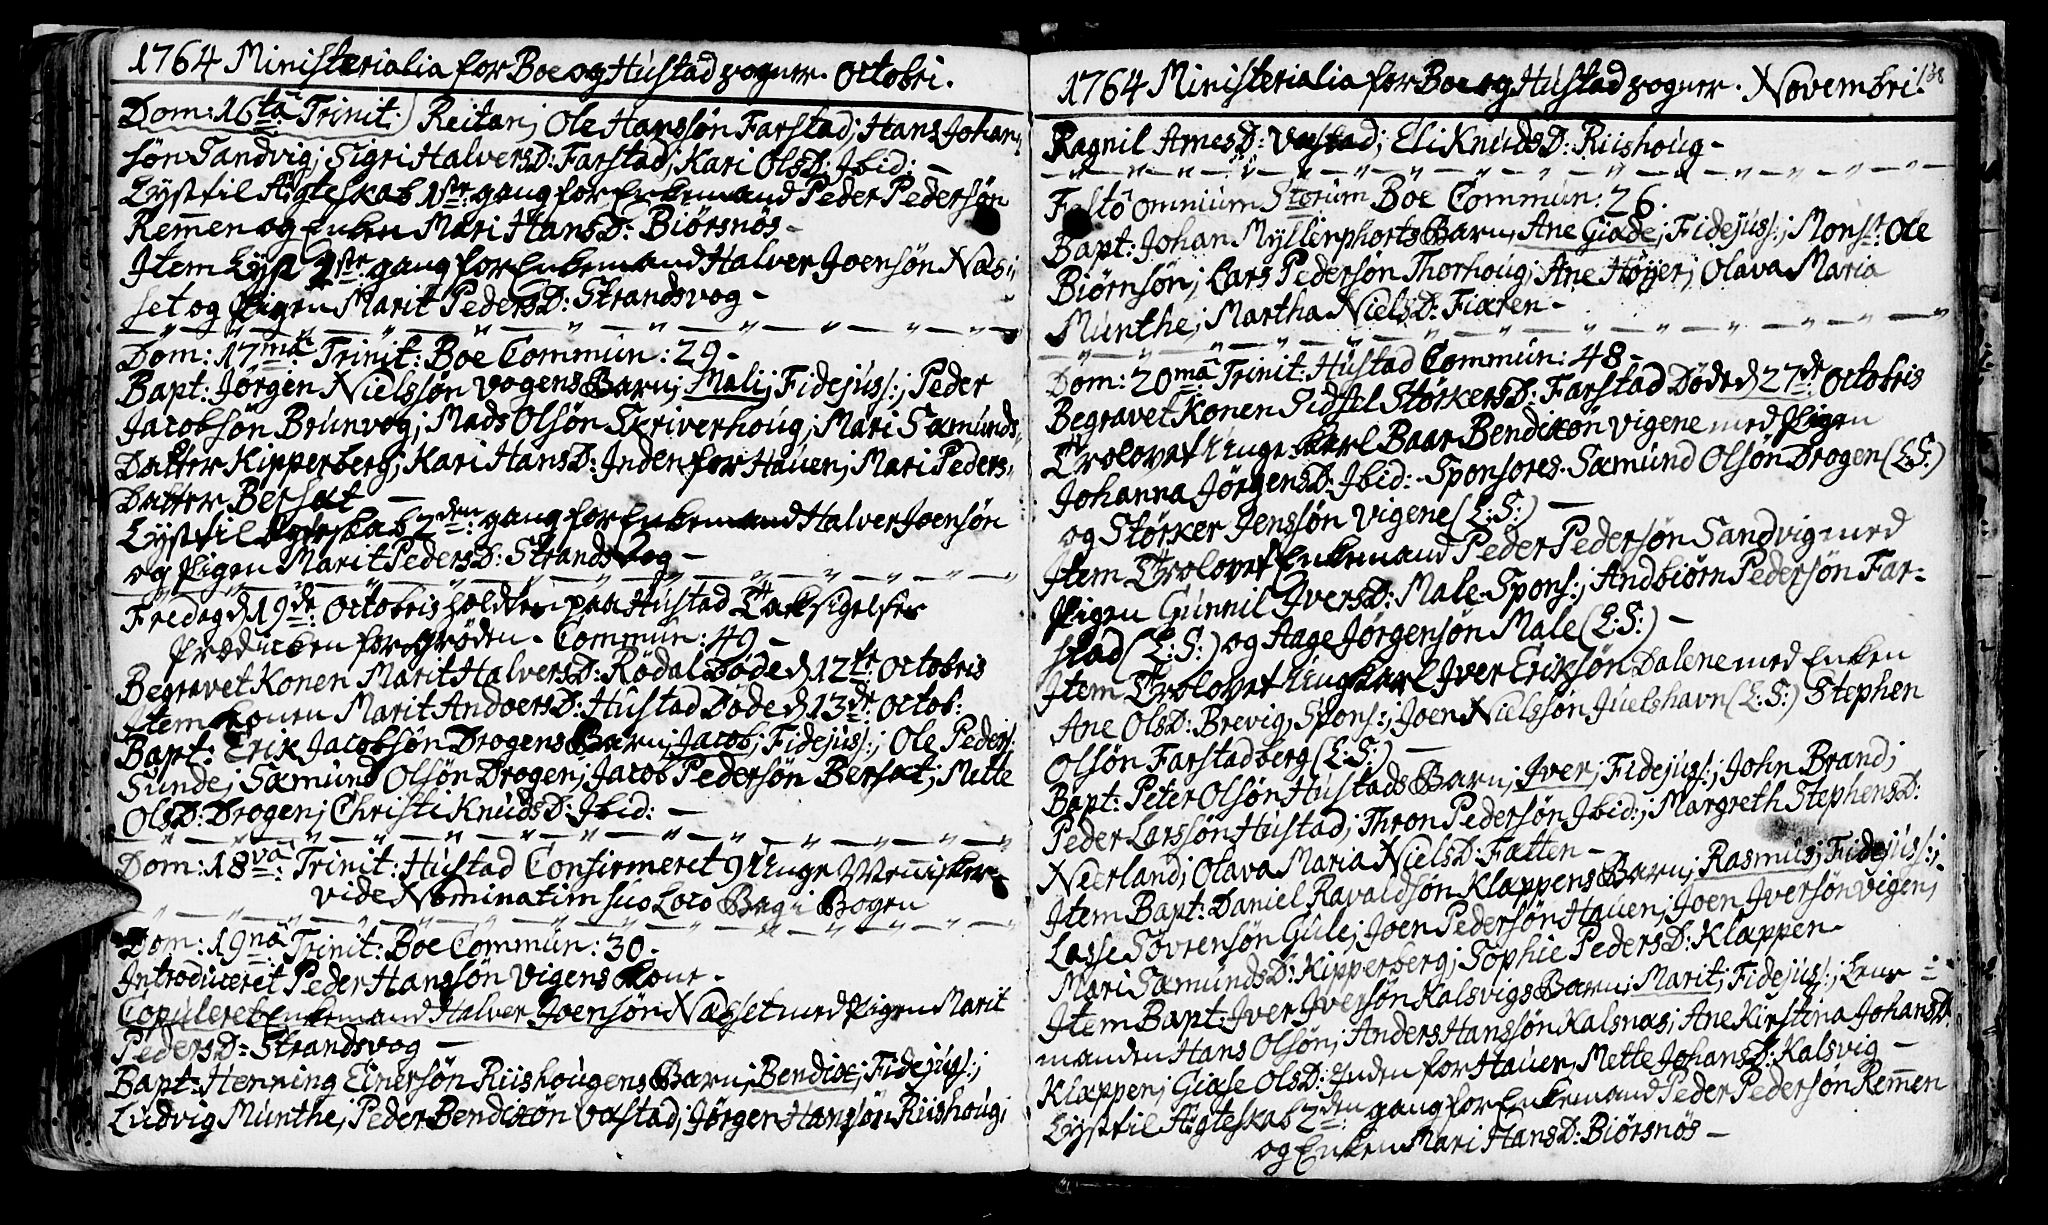 1764 Ministerialia for Boe og Hustad sogner. Octobri.
Dom: 16ta Trinit:) Reitan; Ole Hanssøn Farstad; Hans Johan-
søn Sandvig; Sigri HalversD: Farstad; Kari OlsD: Ibid: -
Lyst til Ægteskab 1ste gang for Enkemand Peder Pedersøn
Remmen og Enken Mari HansD: Biørsnøs -
Item Lyst 1ste gang for Enkemand Halver Joensøn Næs-
set og Pigen Marit PedersD: Strandsvog -
Dom: 17ma Trinit: Boe Commun: 29 -
Bapt: Jørgen Nielssøn Vogens Barn; Mali; Fidejuss:; Peder
Jacobsøn Brunvog; Mads Olsøn Skriverhoug; Mari Sæmunds-
Datter Kipperberg; Kari HansD: Inden for Hauen; Mari Peders-
Datter Bersæt -
Lyst til Egteskab 2den gang for Enkemand Halver Joensøn
og Pigen Marit PedersD: Strandsvog -
Fredag d 19de Octobris holdten paa Hustad Taksigelses
Prædicken for Grøden - Commun: 49 -
Begravet Konen Marit HalversD: Rødal Døde d 12te Octobris
Item Konen Marit AndoersD: Hustad Døde d 13de Octob:
Bapt: Erik Jacobsøn Drogens Barn; Jacob; Fidejuss:; Ole Peders:
Sunde; Sæmund Olsøn Drogen; Jacob Pedersøn Bersæt; Mette
OlsD: Drogen; Christi KnudsD: Ibid: -
Dom: 18va Trinit: Hustad Confirmeret 9 Unge Mennisker
vide Nominatim suo Loco Bag i Bogen
Dom: 19na Trinit: Boe Commun: 30 -
Introduceret Peder Hanssøn Vigens Kone -
Copuleret Enkemand Halver Joensøn Næsset med Pigen Marit
PedersD: Strandsvog -
Bapt: Henning Einersøn Riishougens Barn; Bendix; Fidejuss:;
Ludvig Munthe; Peder Bendixøn Vastad; Jørgen Hanssøn Riishoug;
1764 Ministerialia for Boe og Hustad sogner. Novembri. 138
Ragnil ArnesD: Vastad; Eli KnudsD: Riishoug -
Festo omnium Storum Boe Commun: 26.
Bapt: Johan Myllenphorts Barn; Ane Giæde; Fidejuss:; Monsr: Ole
Biørnsøn; Lars Pedersøn Thorhoug; Ane Høyer; Olava Maria
Munthe; Martha NielsD: Fiæren -
Dom: 20ma Trinit: Hustad Commun: 48 -
Begravet Konen Sidsel StørkersD: Farstad Døde d 27de Octobris
Trolovet Unge Karl Baar Bendixøn Vigene med Pigen
Johanna JørgensD: Ibid: - Sponsores - Sæmund Olsøn Drogen (L:S:)
og Størker Jenssøn Vigene (L:S:) -
Item Trolovet Enkemand Peder Pedersøn Sandvig med
Pigen Gunnil IversD: Male - Spons:; Andbiørn Pedersøn Far-
stad (L:S:) og Aage Jørgensøn Male (L:S:) -
Item Trolovet Ung Karl Iver Eriksøn Dalene med Enken
Ane OlsD: Brevig, Spons:; Joen Nielssøn Juelshavn (L:S:) Stephen
Olsøn Farstadberg (L:S:) -
Bapt: Peter Olsøn Hustads Barn; Iver; Fidejuss:; John Brand;
Peder Larssøn Hustad; Thron Pedersøn Ibid:; Margreth StephensD:
Neerland; Olava Maria NielsD: Fætten -
Item Bapt: Daniel Ravaldsøn Klappens Barn; Rasmus; Fidejuss:;
Lasse Sovrensøn Gule; Joen Pedersøn Hauen; Joen Iversøn Vigen;
Mari SæmundsD: Kipperberg; Sophie PedersD: Klappen -
Item Bapt: Iver Iversøn Kalsvigs Barn; Marit; Fidejuss:; Lens-
manden Hans Olsøn; Anders Hanssøn Kalsnæs; Ane Kirstina JohansD:
Klappen; Giæse OlsD: Inden for Hauen, Mette JohansD: Kalsvig -
Lyst til Ægteskab 2den gang for Enkemand Peder Pedersøn Remmen
og Enken Mari HansD: Biørsnøs -